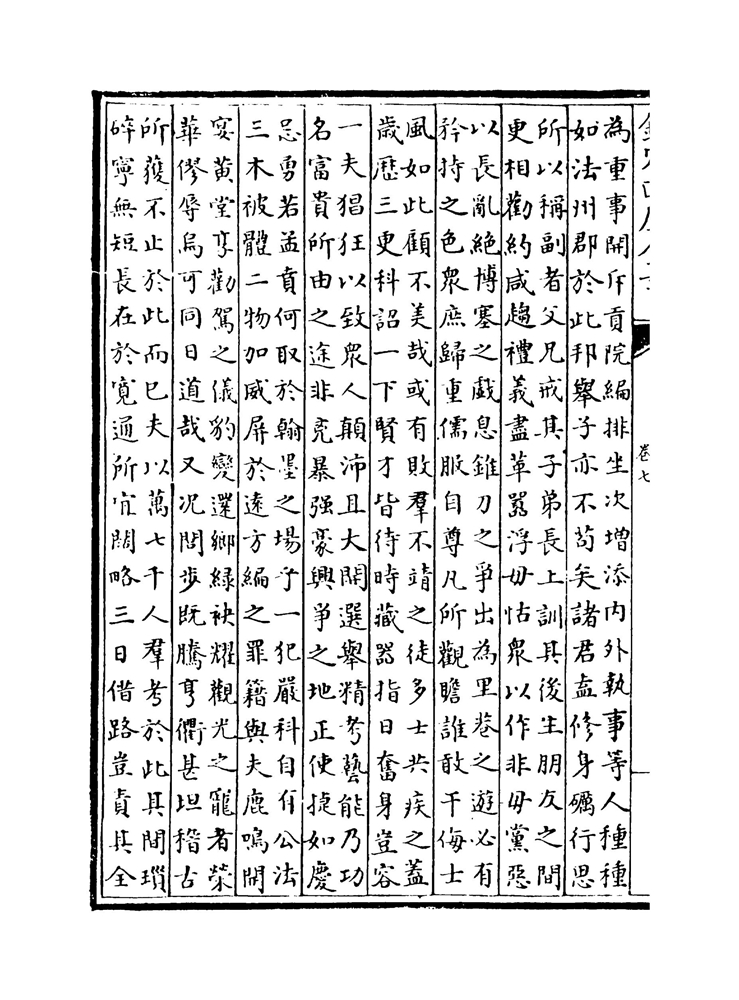 卷七
為重事開斥貢院編排坐次增添内外執事等人種種
如法州郡於此邦舉子亦不苟矣諸君盍修身礪行思
所以稱副者父兄戒其子弟長上訓其後生朋友之間
更相勸約咸趨禮義盡革囂浮毋怙衆以作非毋黨惡
以長亂絶博塞之戲息錐刀之爭出為里巷之遊必有
矜持之色衆庶歸重儒服自尊凡所觀瞻誰敢干侮士
風如此顧不美哉或有敗羣不靖之徒多士共疾之蓋
歲歷三更科詔一下賢才皆待時藏器指日奮身豈容
一夫猖狂以致衆人顛沛且大開選舉精考藝能乃功
名富貴所由之途非兇暴强豪興爭之地正使㨗如慶
忌勇若孟賁何取於翰墨之場乎一犯嚴科自有公法
三木被體二物加威屏於遠方編之罪籍與夫鹿鳴開
宴黄堂享勸駕之儀豹變還鄉緑袂耀觀光之寵者榮
華僇辱烏可同日道哉又况問歩既騰亨衢甚坦稽古
所獲不止於此而已夫以萬七千人羣考於此其間瑣
碎寧無短長在於寛通所宜闊略三日借路豈責其全